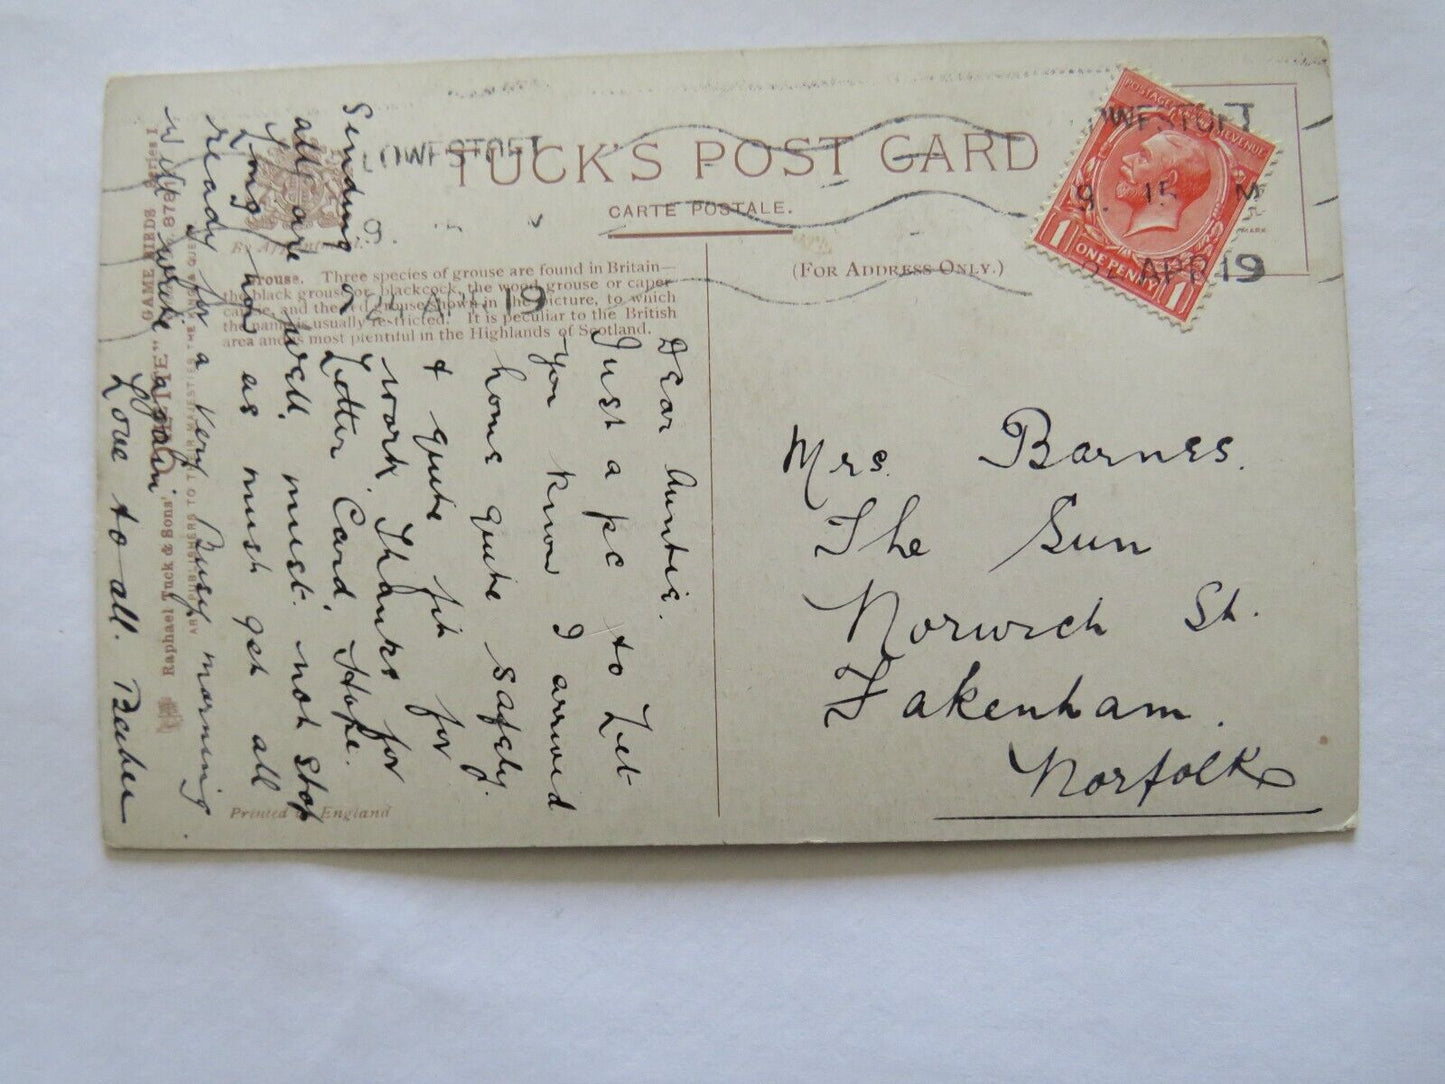 TUCK'S POST CARD
CARTE POSTALE.
(FOR ADDRESS ONLY.)
LOWESTOFT
9. 15
APR 19
OWESTOFT
9. 15 M
APR 19
POSTAGE REVENUE
1 ONE PENNY 1
By Appointment.
Grouse. Three species of grouse are found in Britain—
the black grouse or blackcock, the wood grouse or caper-
cailzie, and the red grouse shown in the picture, to which
the name is usually restricted. It is peculiar to the British
area and is most plentiful in the Highlands of Scotland.
Dear Auntie.
Just a pc to Let
you know I arrived
home quite safely.
& quite fit for
work. Thanks for
Letter Card, Hope
all are well. must not stop
Long now as must get all
ready for a very Busy morning
will write again.
Love to all.
Sending
Mrs. Barnes.
The Sun
Norwich St.
Fakenham.
Norfolk
Raphael Tuck & Sons'
GAME BIRDS Series I.
ART PUBLISHERS TO THEIR MAJESTIES THE KING & QUEEN
Printed in England